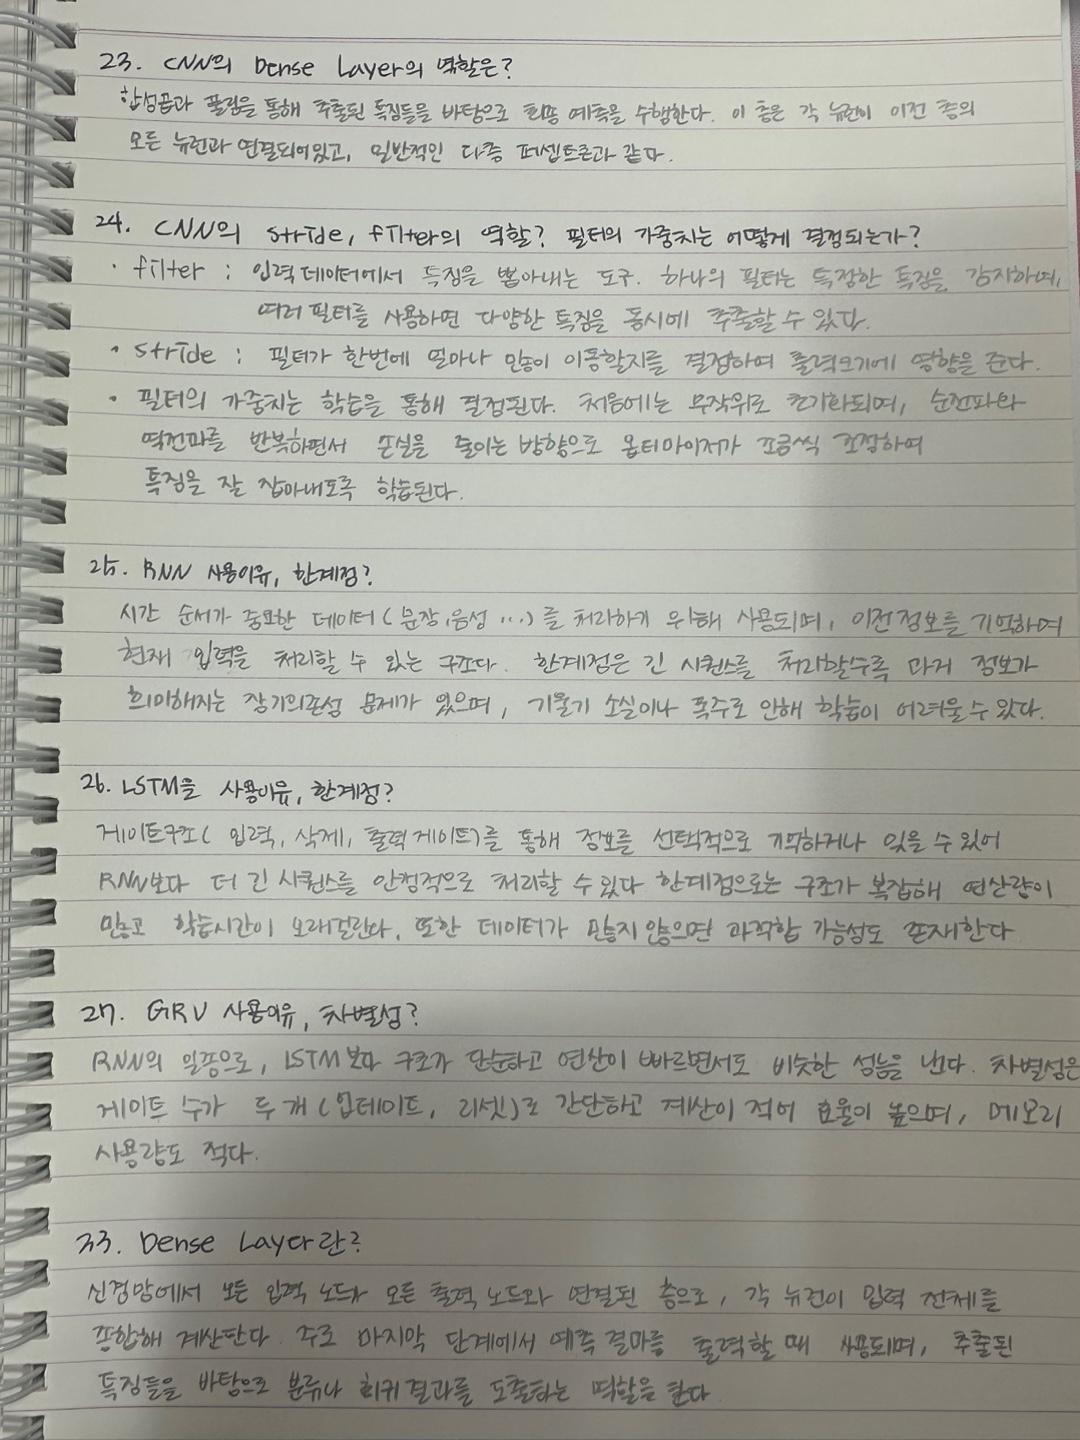 23. CNN의 Dense Layer의 역할은?
합성곱과 풀링을 통해 추출된 특징들을 바탕으로 최종 예측을 수행한다. 이 층은 각 뉴런이 이전 층의
모든 뉴런과 연결되어있고, 일반적인 다층 퍼셉트론과 같다.
24. CNN의 stride, filter의 역할? 필터의 가중치는 어떻게 결정되는가?
· filter : 입력데이터에서 특징을 뽑아내는 도구. 하나의 필터는 특정한 특징을 감지하며,
여러 필터를 사용하면 다양한 특징을 동시에 추출할 수 있다.
· stride : 필터가 한번에 얼마나 많이 이동할지를 결정하며 출력크기에 영향을 준다.
· 필터의 가중치는 학습을 통해 결정된다. 처음에는 무작위로 초기화되며, 순전파와
역전파를 반복하면서 손실을 줄이는 방향으로 옵티마이저가 조금씩 조절하여
특징을 잘 잡아내도록 학습된다.
25. RNN 사용이유, 한계점?
시간 순서가 중요한 데이터(문장, 음성 ...)를 처리하기 위해 사용되며, 이전정보를 기억하며
현재 입력을 처리할 수 있는 구조다. 한계점은 긴 시퀀스를 처리할수록 과거 정보가
희미해지는 장기의존성 문제가 있으며, 기울기 소실이나 폭주로 인해 학습이 어려울수 있다.
26. LSTM을 사용이유, 한계점?
게이트구조( 입력, 삭제, 출력게이트)를 통해 정보를 선택적으로 기억하거나 잊을 수 있어
RNN보다 더 긴 시퀀스를 안정적으로 처리할 수 있다 한계점으로는 구조가 복잡해 연산량이
많고 학습시간이 오래걸린다. 또한 데이터가 많지 않으면 과적합 가능성도 존재한다
27. GRU 사용이유, 차별성?
RNN의 일종으로, LSTM보다 구조가 단순하고 연산이 빠르면서도 비슷한 성능을 낸다. 차별성은
게이트 수가 두개(업데이트, 리셋)로 간단하고 계산이 적어 효율이 높으며, 메모리
사용량도 적다.
33. Dense Layer란?
신경망에서 모든 입력 노드가 모든 출력 노드와 연결된 층으로, 각 뉴런이 입력 전체를
종합해 계산한다. 주로 마지막 단계에서 예측 결과를 출력할 때 사용되며, 추출된
특징들을 바탕으로 분류나 회귀결과를 도출하는 역할을 한다